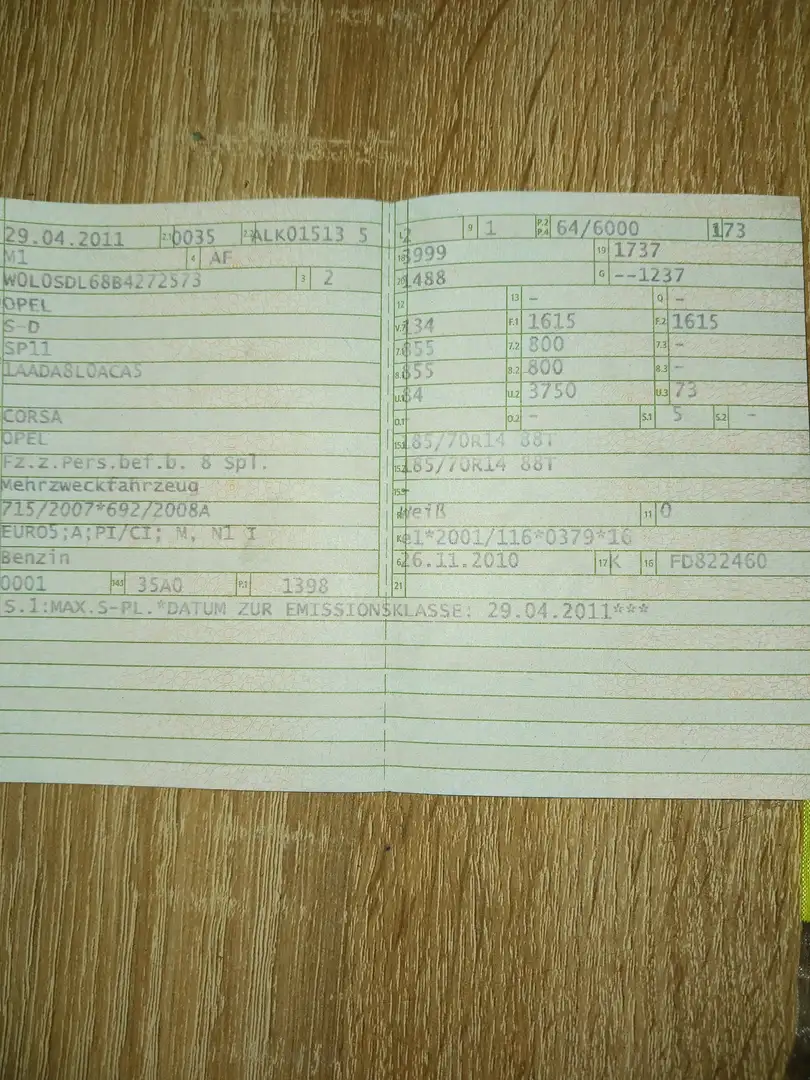 29.04.2011 2.1 0035 2.2 ALK01513 5
M1 4 AF
W0L0SDL68B4272573 3 2
OPEL
S-D
SP11
1AADA8L0ACA5
CORSA
OPEL
Fz.z.Pers.bef.b. 8 Spl.
Mehrzweckfahrzeug
715/2007*692/2008A
EURO5;A;PI/CI; M, N1 I
Benzin
0001 14.1 35A0 P.1 1398
L 2 9 1 P.2 P.4 64/6000 173
18 3999 19 1737
20 1488 G --1237
12 13 - Q -
V.7 134 F.1 1615 F.2 1615
7.1 855 7.2 800 7.3 -
8.1 855 8.2 800 8.3 -
U.1 84 U.2 3750 U.3 73
O.1 O.2 - S.1 5 S.2 -
15.1 185/70R14 88T
15.2 185/70R14 88T
15.3
R weiß 11 0
K e1*2001/116*0379*16
6 26.11.2010 17 K 16 FD822460
21
S.1:MAX.S-PL.*DATUM ZUR EMISSIONSKLASSE: 29.04.2011***